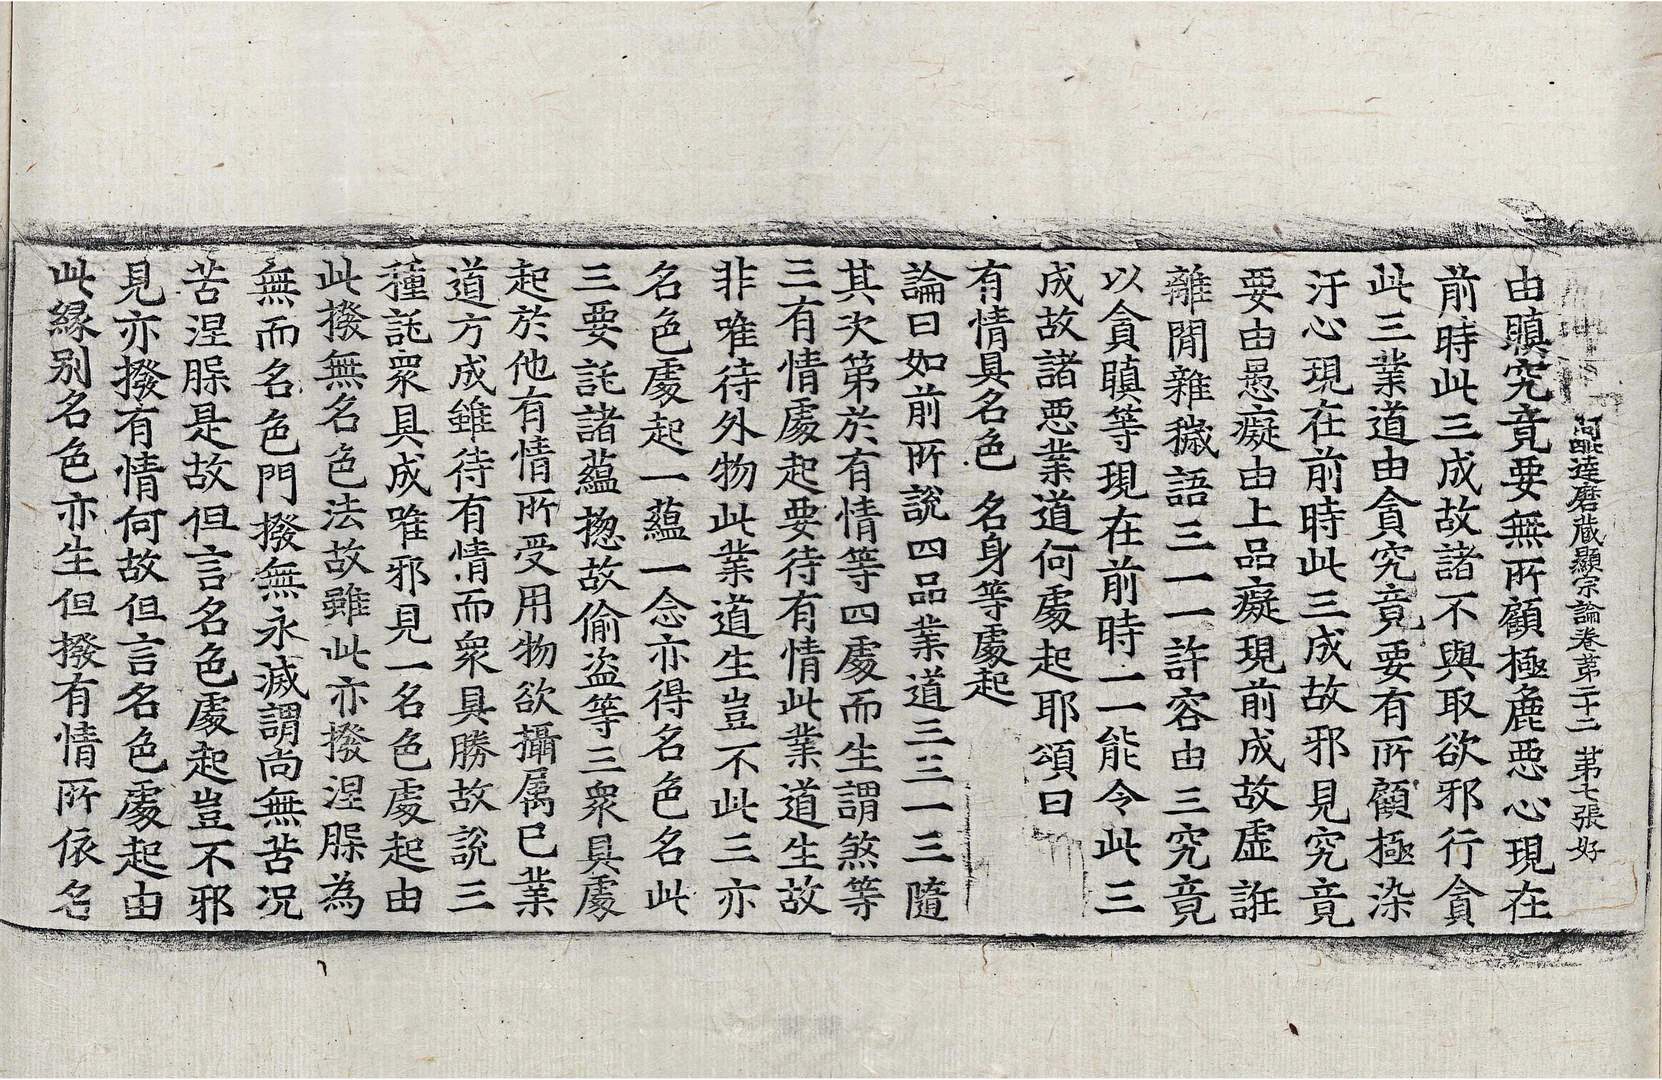 阿毗達磨藏顯宗論卷第二十二 第七張 好
由瞋究竟要無所顧極麁惡心現在
前時此三成故諸不與取欲邪行貪
此三業道由貪究竟要有所顧極染
汙心現在前時此三成故邪見究竟
要由愚癡由上品癡現前成故虛誑
離間雜穢語三一一許容由三究竟
以貪瞋等現在前時一一能令此三
成故諸惡業道何處起耶頌曰
有情具名色 名身等處起
論曰如前所說四品業道三三一三隨
其次第於有情等四處而生謂煞等
三有情處起要待有情此業道生故
非唯待外物此業道生豈不此三亦
名色處起一蘊一念亦得名色名此
三要託諸蘊揔故偷盜等三衆具處
起於他有情所受用物欲攝属已業
道方成雖待有情而衆具勝故說三
種託衆具成唯邪見一名色處起由
此撥無名色法故雖此亦撥涅槃為
無而名色門撥無永滅謂尚無苦况
苦涅槃是故但言名色處起豈不邪
見亦撥有情何故但言名色處起由
此緣别名色亦生但撥有情所依名